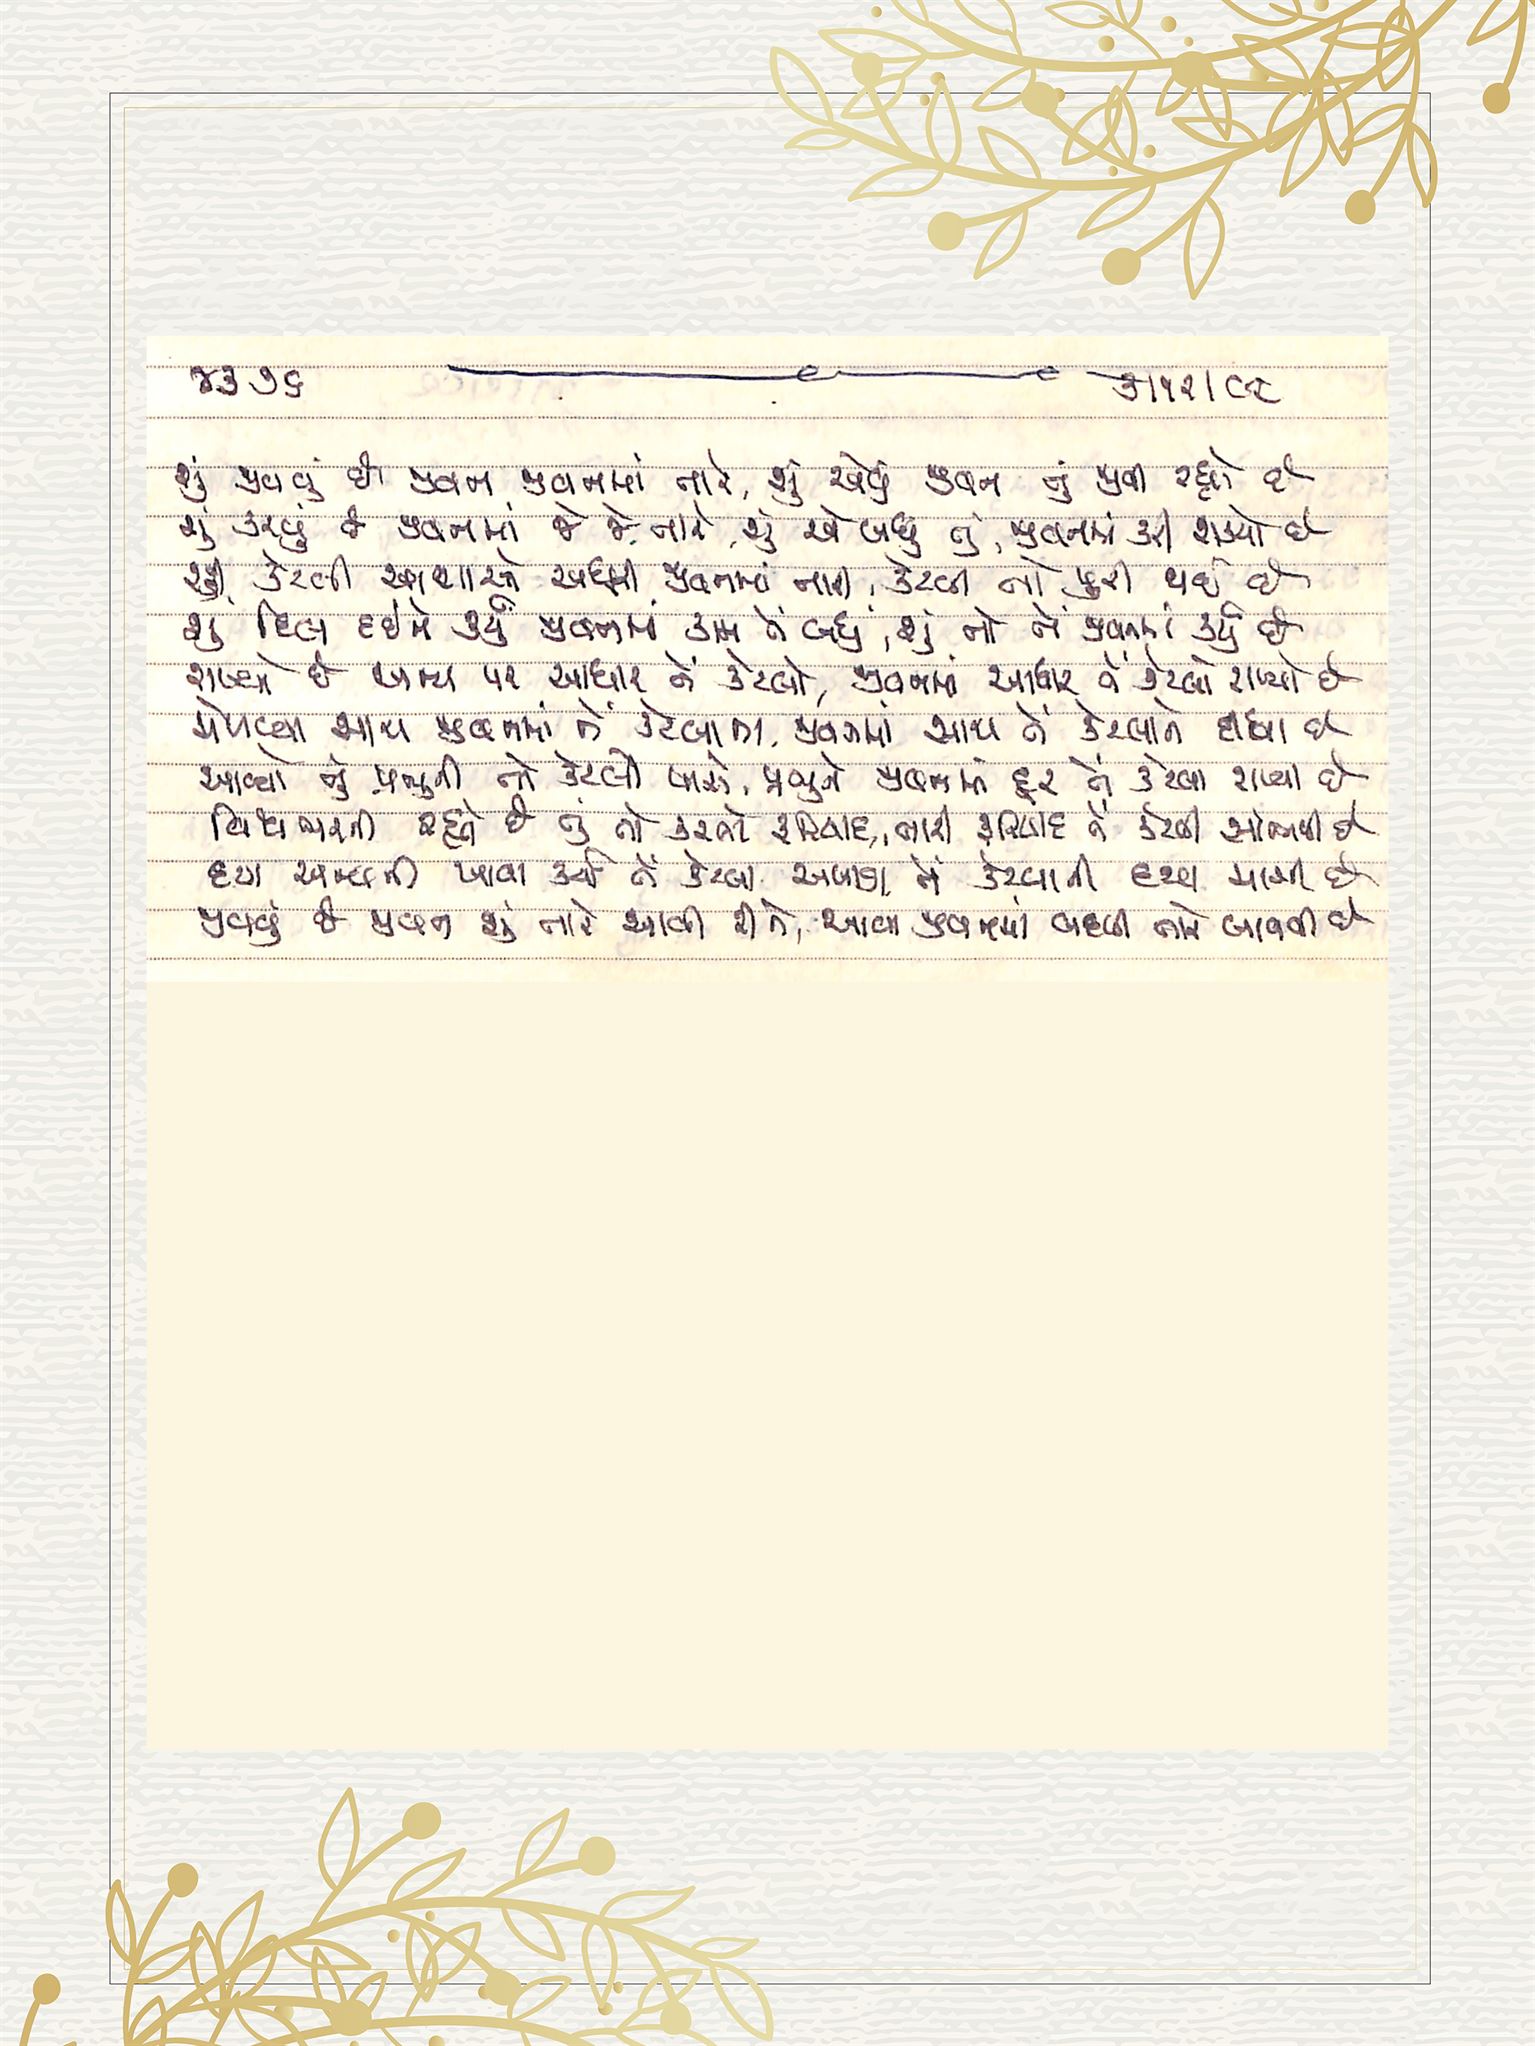 ૪૩૭૬ ૩।૧૨।૯૨
શું જીવવું છે જીવન જીવનમાં તારે, શું એવું જીવન તું જીવી રહ્યો છે
શું કરવું છે જીવનમાં જે જે તારે, શું એ બધું તું, જીવનમાં કરી શક્યો છે
રહી કેટલી આશાઓ અધૂરી જીવનમાં તારી, કેટલી તો પૂરી થઈ છે
શું દિલ દઈને કર્યું જીવનમાં કામ તેં બધું, શું તો તેં જીવનમાં કર્યું છે
રાખ્યો છે અન્ય પર આધાર તેં કેટલો, જીવનમાં આધાર તેં કેટલો રાખ્યો છે
મેળવ્યા સાથ જીવનમાં તેં કેટલાના, જીવનમાં સાથ તેં કેટલાને દીધા છે
આવ્યો તું પ્રભુની તો કેટલી પાસે, પ્રભુને જીવનમાં દૂર તેં કેટલા રાખ્યા છે
વિશ્વભરની રહ્યો છે તું તો કરતો ફરિયાદ, તારી ફરિયાદ તેં કેટલી સાંભળી છે
દયા અન્યની ખાવા કર્યા તેં કેટલા, અબોલા તેં કેટલાની દયા માગી છે
જીવવું છે જીવન શું તારે આવી રીતે, આવા જીવનમાં બદલી તારે લાવવી છે